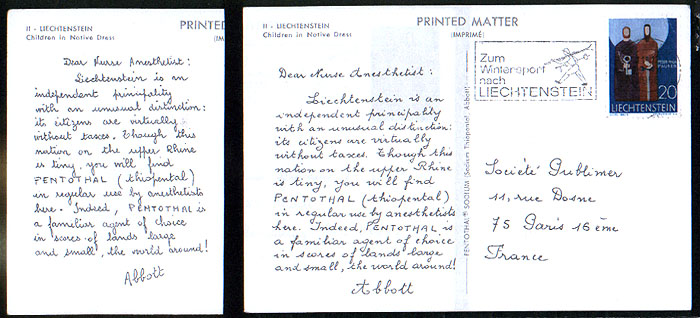 II - LIECHTENSTEIN
Children in Native Dress
PRINTED MATTER
(IMPRIMÉ)
Dear Nurse Anesthetist:
Liechtenstein is an
independent principality
with an unusual distinction:
its citizens are virtually
without taxes. Though this
nation on the upper Rhine
is tiny, you will find
PENTOTHAL (thiopental)
in regular use by anesthetists
here. Indeed, PENTOTHAL is
a familiar agent of choice
in scores of lands large
and small, the world around!
Abbott
II - LIECHTENSTEIN
Children in Native Dress
PRINTED MATTER
(IMPRIMÉ)
Dear Nurse Anesthetist:
Liechtenstein is an
independent principality
with an unusual distinction:
its citizens are virtually
without taxes. Though this
nation on the upper Rhine
is tiny, you will find
PENTOTHAL (thiopental)
in regular use by anesthetists
here. Indeed, PENTOTHAL is
a familiar agent of choice
in scores of lands large
and small, the world around!
Abbott
PENTOTHAL® SODIUM (Sodium Thiopental, Abbott)
Zum
Wintersport
nach
LIECHTENSTEIN
20
LIECHTENSTEIN
Société Publimer
11, rue Dosne
75 Paris 16ème
France